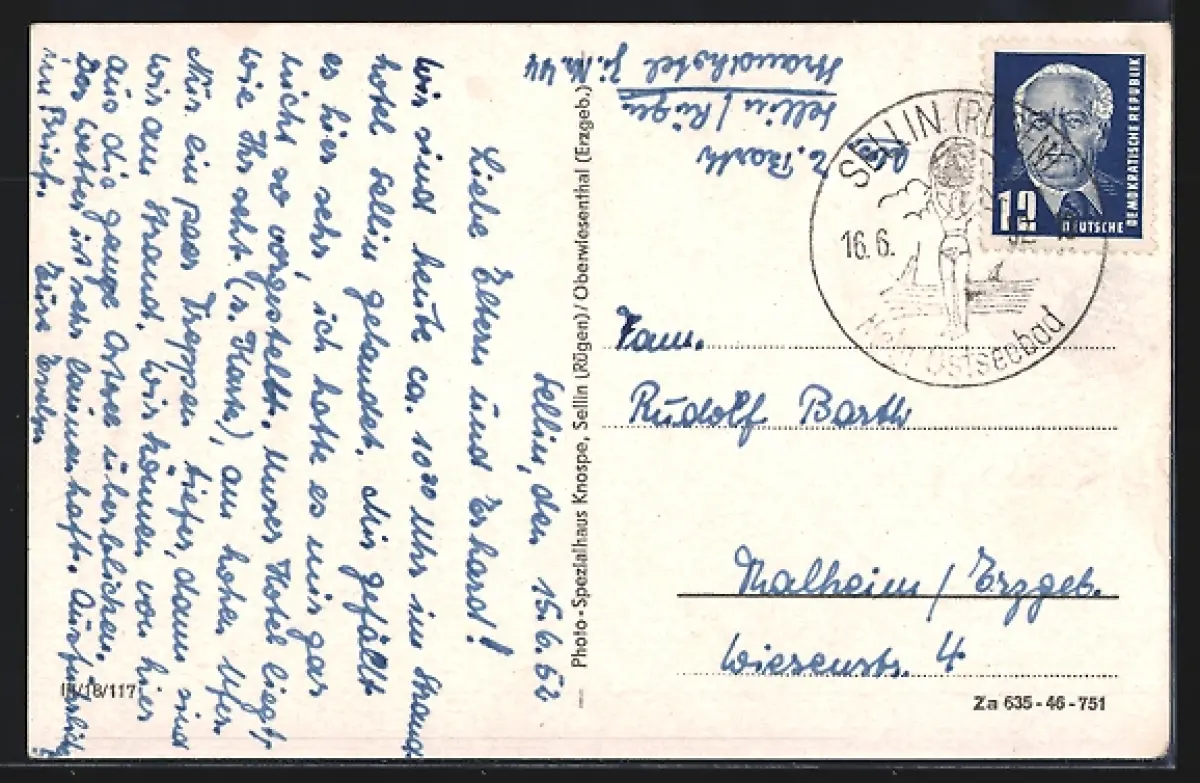 Sellin, den 15.6.52
Liebe Eltern und Erhard!
Wir sind heute ca. 10³⁰ Uhr im Strand
hotel Sellin gelandet. Mir gefällt
es hier sehr, ich hatte es mir gar
nicht so vorgestellt. Unser Hotel liegt,
wie Ihr seht (s. Karte), am hohen Ufer.
Nur ein paar Treppen tiefer, dann sind
wir am Strand. Wir können von hier
aus die ganze Ostsee überblicken.
Das Wetter ist sehr launenhaft. Ausführlich
im Brief. Eure Evelyn
III/18/117
Photo-Spezialhaus Knospe, Sellin (Rügen) / Oberwiesenthal (Erzgeb.)
Abs.
E. Barth
Sellin / Rügen
Strandhotel Zi. Nr. 44
SELLIN (RÜGEN)
16.6.
Dein Ostseebad
12
DEUTSCHE
DEMOKRATISCHE REPUBLIK
Fam.
Rudolf Barth
Thalheim / Erzgeb.
Wiesenstr. 4
Za 635-46-751